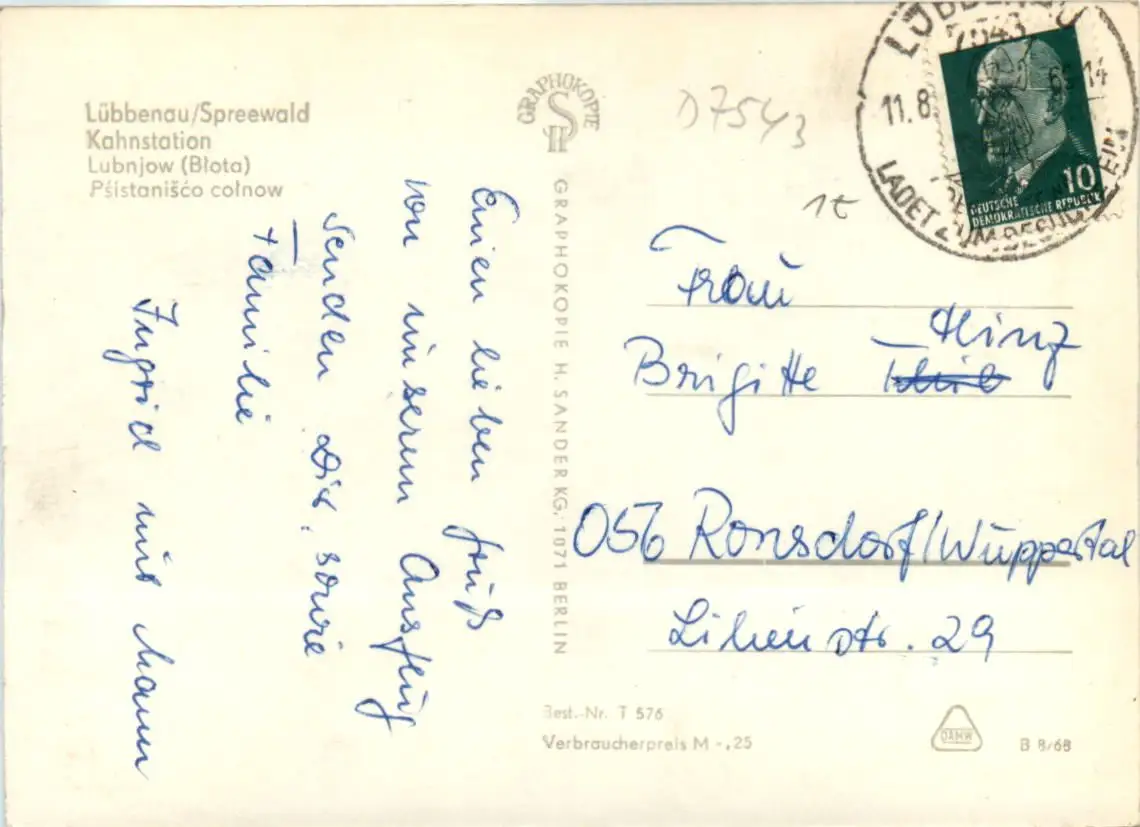 Lübbenau/Spreewald
Kahnstation
Lubnjow (Błota)
Pśistanišćo cołnow
Einen lieben Gruß
von unserem Ausflug
senden Dir, sowie
Familie
Ingrid mit Mann
GRAPHOKOPIE
GRAPHOKOPIE H. SANDER KG, 1071 BERLIN
D7543
1t
LÜBBENAU
7543
11.8. 69-14
LADET ZUM BESUCH EIN
10
DEUTSCHE
DEMOKRATISCHE REPUBLIK
Frau
Brigitte Hinz
056 Ronsdorf/Wuppertal
Lilienstr. 29
Best.-Nr. T 576
Verbraucherpreis M -,25
DAMW
B 8/68